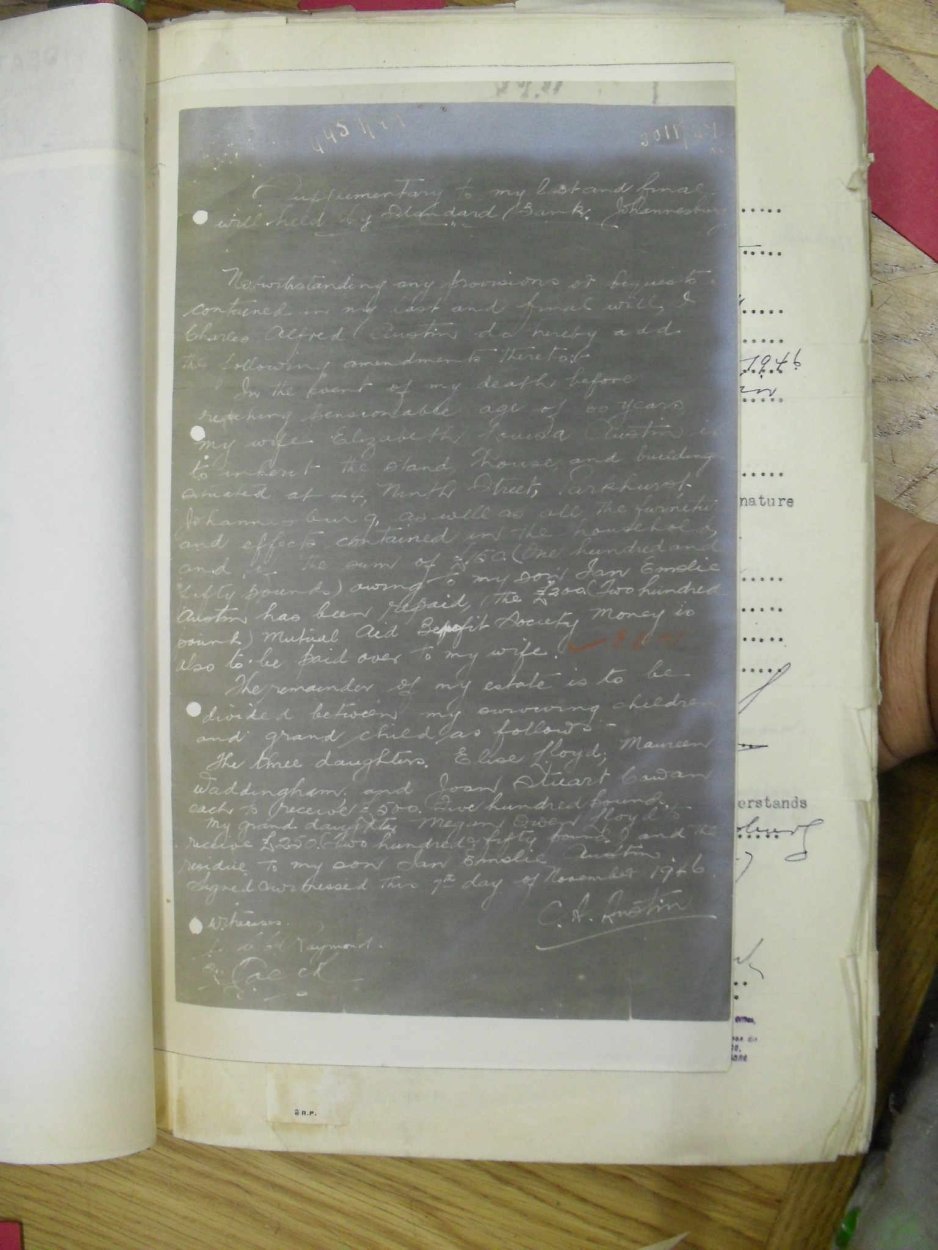 Supplementary to my last and final
will held by Standard Bank, Johannesburg
Notwithstanding any provisions or bequests
contained in my last and final will, I
Charles Alfred Austin do hereby add
the following amendments thereto:
In the event of my death before
reaching pensionable age of 60 years
my wife Elizabeth Louisa Austin is
to inherit the stand, house, and building
situated at 44, Ninth Street, Parkhurst,
Johannesburg, as well as all the furniture
and effects contained in the household,
and the sum of £150 (One hundred and
fifty pounds) owing to my son Ian Emslie
Austin has been repaid, the £200 (Two hundred
pounds) Mutual Aid Benefit Society Money is
also to be paid over to my wife.
The remainder of my estate is to be
divided between my surviving children
and grand child as follows -
The three daughters. Elise Lloyd, Maureen
Waddingham and Joan Stuart Cowan
each to receive £500 Five hundred pounds.
My grand daughter Megan Owen Lloyd to
receive £250 two hundred & fifty pounds and the
residue to my son Ian Emslie Austin.
Signed & witnessed this 7th day of November 1946.
C. A. Austin
Witnesses.
1946
nature
erstands
B.R.P.